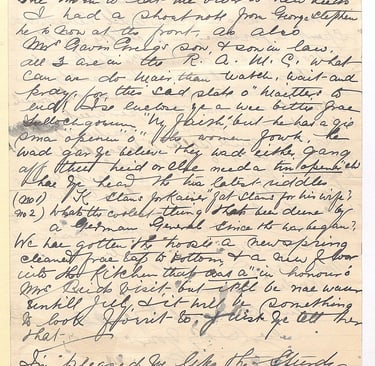 I had a short note from George Stephen
he is on at the front, as also
Mrs Gavin Greig's son, & son in law,
all 3 are in the R. A. M. C, what
can we do mair than watch, wait and
pray, for this sad state o' maitters to
end. I'se enclose ye a wee bittie frae
Tullochgorum "My faish" but he has a
sma openin' o' the women fowk, he
wad gar ye believe they wad either gang
aff their heid or else need a
Hae ye heard the twa latest riddles
(no 1) K stans for Kaiser "fat stans for his wife?
no 2) Whats the coolest thing thats been deene by
a German General since the war began?
We hae gotten the hoosie a' new spring
cleaned frae tap to bottom, & a new floor
into the kitchen thats was a' in honour o
Mrs Reids visit but it'll be nae waur
till July & it will be something
to look forrit to, Jist ye tell her
that.
I'm pleased ye like the